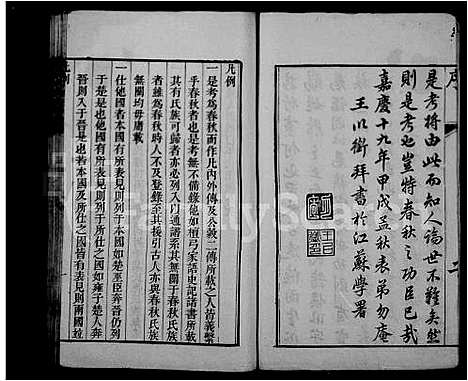 序
二
是考將由此而知人論世不難矣然
則是考也豈特春秋之功臣已哉
嘉慶十九年甲戌孟秋表弟勿庵
王以銜拜書於江蘇學署
凡例
一是考為春秋而作凡內外傳及公穀二傳所載之人皆義繫
乎春秋者也是考無不備錄他如檀弓家語記諸書所載
其有氏族可歸者亦必列入門通譜系其無關于春秋氏族
者雖為春秋時人不及登錄至其後裔援引古人亦與春秋氏族
無關均毋庸載
一仕他國者本國有所表見則列于本國如楚巫臣奔晉仍列
于楚是也他國有所表見則列于所仕之國如雍子楚人奔
晉則入于晉是也或于本國所仕之國皆有表見則兩國竝
FamilySearch